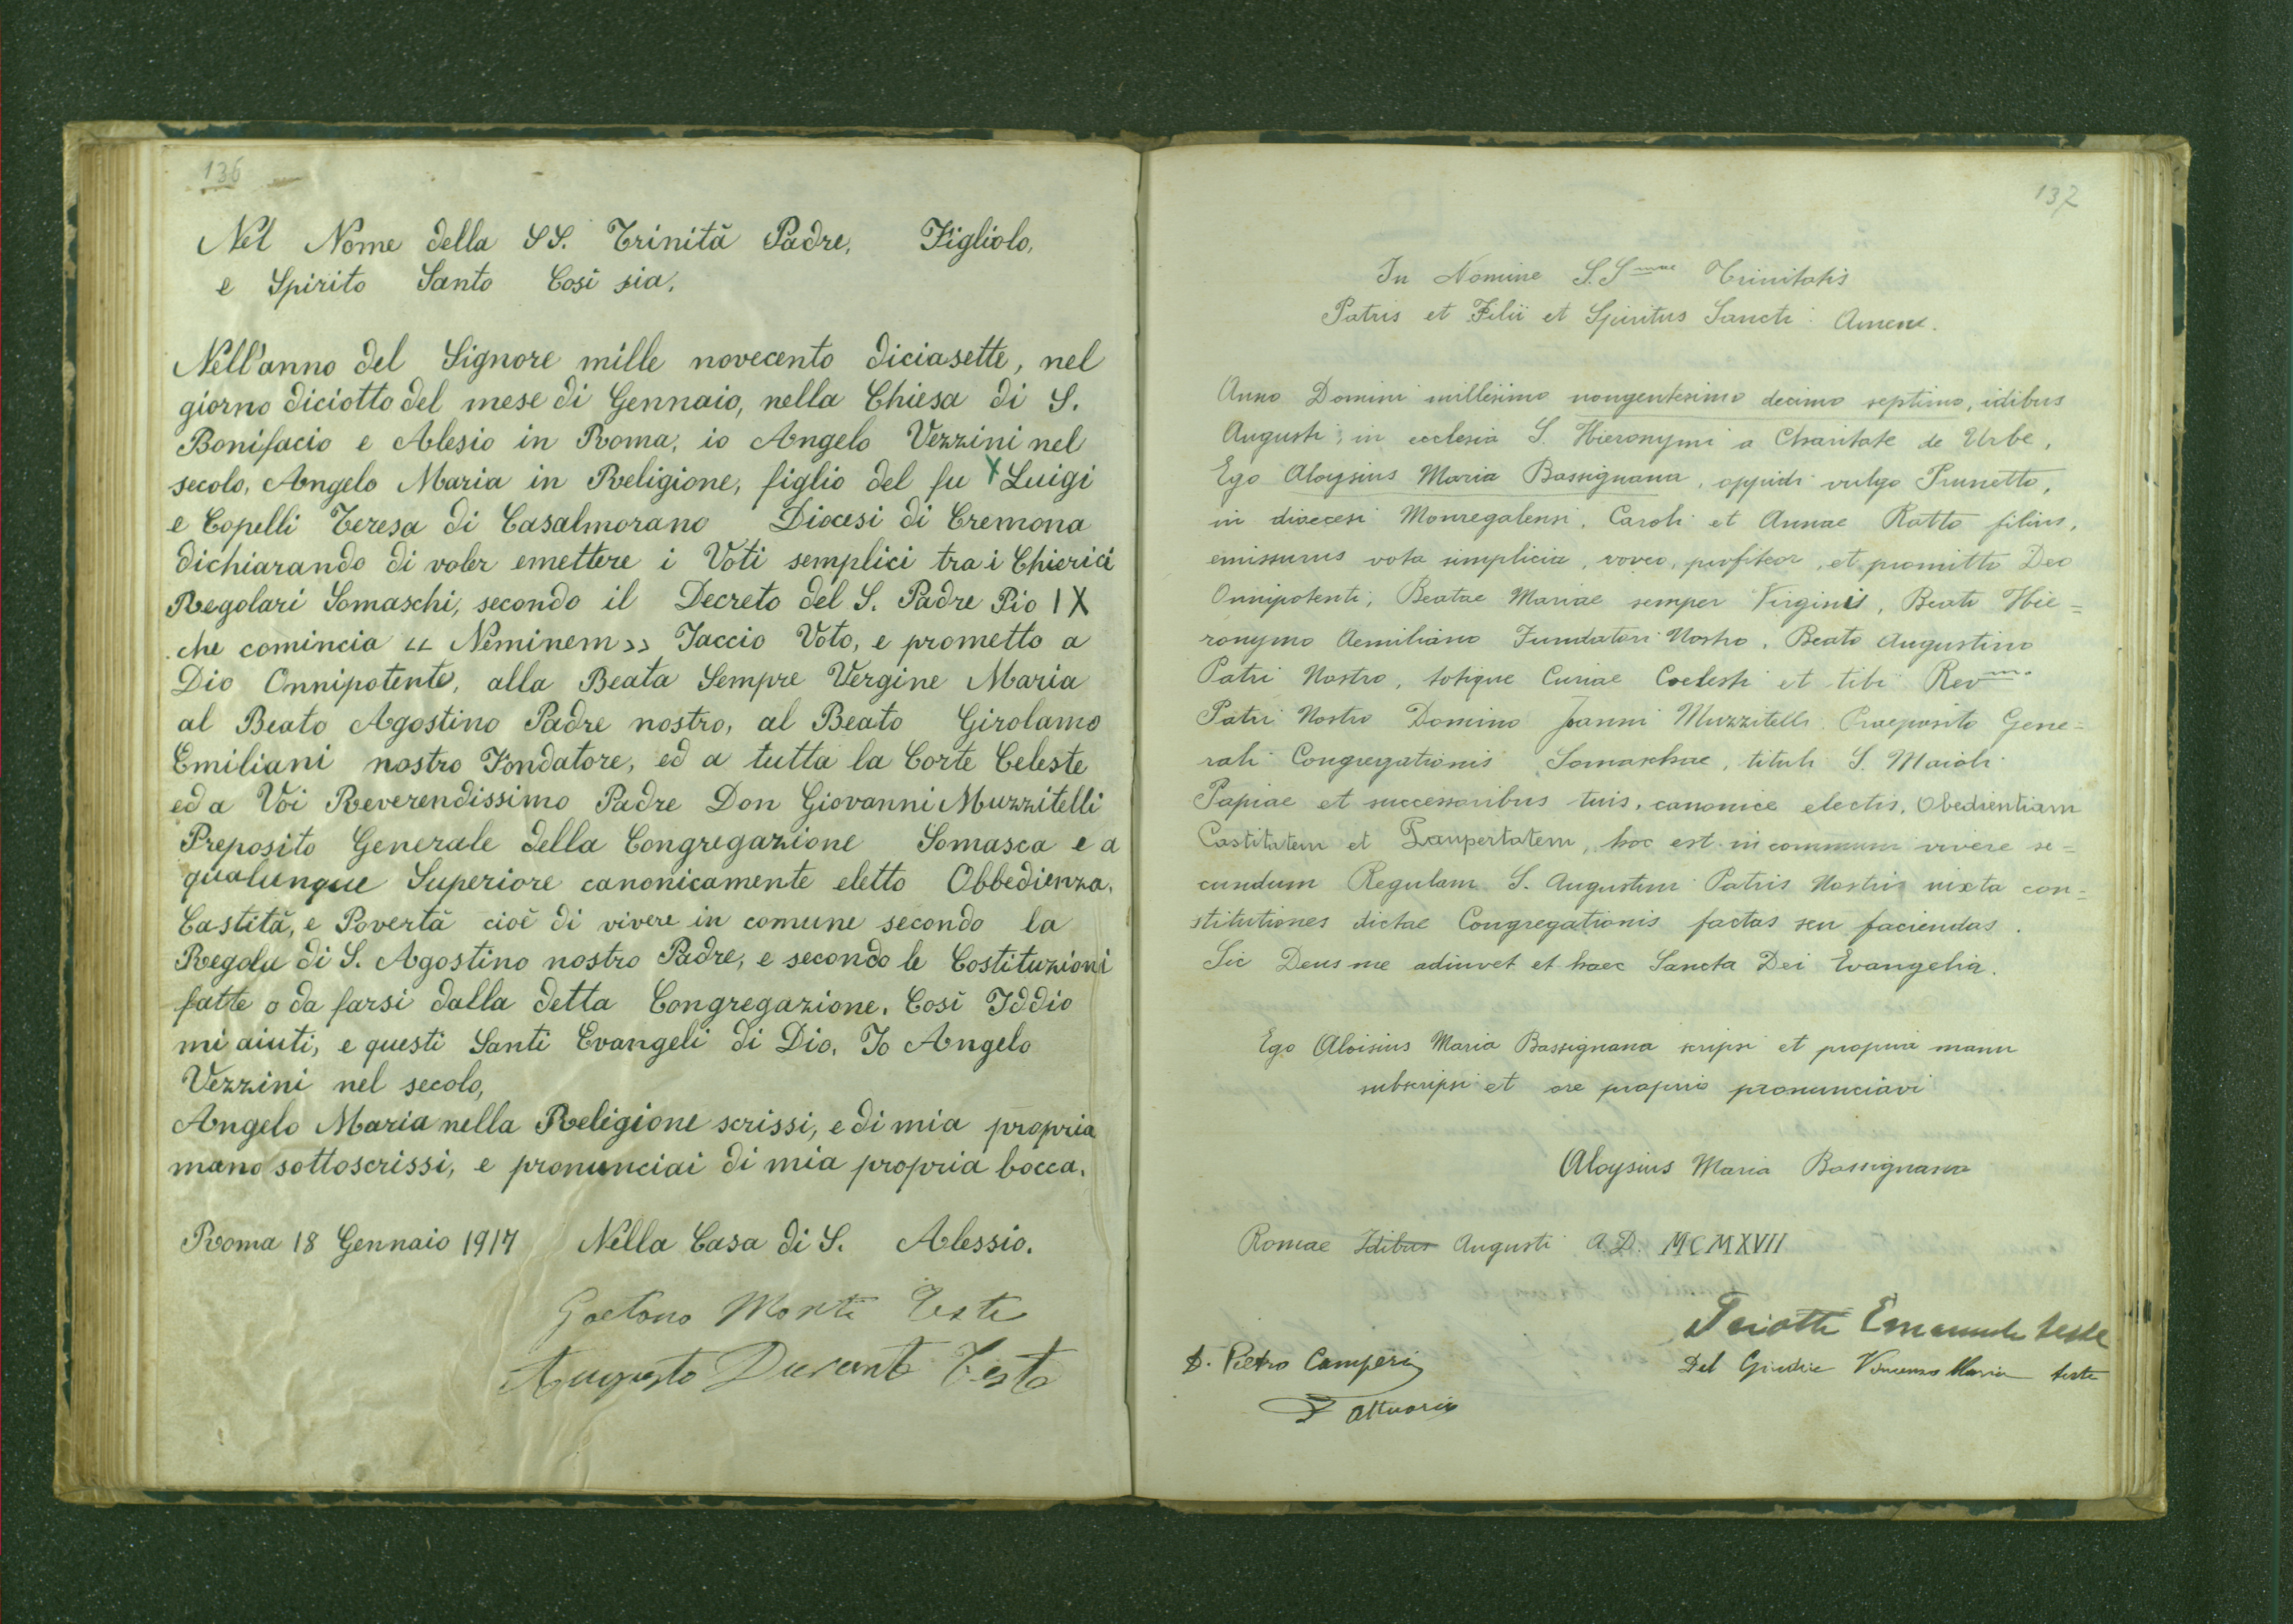 136
Nel Nome della SS. Trinità Padre, Figliolo,
e Spirito Santo Così sia.
Nell'anno del Signore mille novecento diciasette, nel
giorno diciotto del mese di Gennaio, nella Chiesa di S.
Bonifacio e Alesio in Roma, io Angelo Vezzini nel
secolo, Angelo Maria in Religione, figlio del fu x Luigi
e Copelli Teresa di Casalmorano Diocesi di Cremona
dichiarando di voler emettere i Voti semplici tra i Chierici
Regolari Somaschi, secondo il Decreto del S. Padre Pio IX
che comincia << Neminem >> Faccio Voto, e prometto a
Dio Onnipotente, alla Beata Sempre Vergine Maria
al Beato Agostino Padre nostro, al Beato Girolamo
Emiliani nostro Fondatore, ed a tutta la Corte Celeste
ed a Voi Reverendissimo Padre Don Giovanni Muzzitelli
Preposito Generale della Congregazione Somasca e a
qualunque Superiore canonicamente eletto Obbedienza,
Castità, e Povertà cioè di vivere in comune secondo la
Regola di S. Agostino nostro Padre, e secondo le Costituzioni
fatte o da farsi dalla detta Congregazione. Così Iddio
mi aiuti, e questi Santi Evangeli di Dio. Io Angelo
Vezzini nel secolo,
Angelo Maria nella Religione scrissi, e di mia propria
mano sottoscrissi, e pronunciai di mia propria bocca.
Roma 18 Gennaio 1917 Nella Casa di S. Alessio.
Gaetano Monti Teste
Augusto Durante Teste
137
In Nomine S.S.mae Trinitatis
Patris et Filii et Spiritus Sancti. Amen.
Anno Domini millesimo nongentesimo decimo septimo, idibus
Augusti, in ecclesia S. Hieronymi a Charitate de Urbe,
Ego Aloysius Maria Bassignana, oppidi vulgo Prunetto,
in dioecesi Monregalensi, Caroli et Annae Ratto filius,
emissurus vota simplicia, voveo, profiteor, et promitto Deo
Omnipotenti, Beatae Mariae semper Virginis, Beato Hie=
ronymo Aemiliano Fundatori Nostro, Beato Augustino
Patri Nostro, totique Curiae Coelesti et tibi Rev.mo
Patri Nostro Domino Joanni Muzzitelli Praeposito Gene=
rali Congregationis Somaschae, tituli S. Maioli
Papiae et successoribus tuis, canonice electis, Obedientiam
Castitatem et Paupertatem, hoc est in communi vivere se=
cundum Regulam S. Augustini Patris Nostri iuxta con=
stitutiones dictae Congregationis factas seu faciendas.
Sic Deus me adiuvet et haec Sancta Dei Evangelia.
Ego Aloisius Maria Bassignana scripsi et propria manu
subscripsi et ore proprio pronunciavi
Aloysius Maria Bassignana
Romae Idibus Augusti A.D. MCMXVII
Emanuele teste
D. Pietro Camperi
Del Giudice Vincenzo Maria teste
Attuario